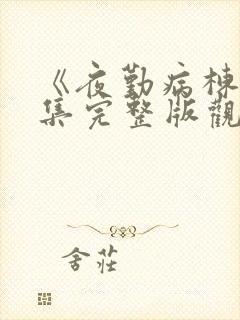 《夜勤病棟
集完整版觀
舍莊